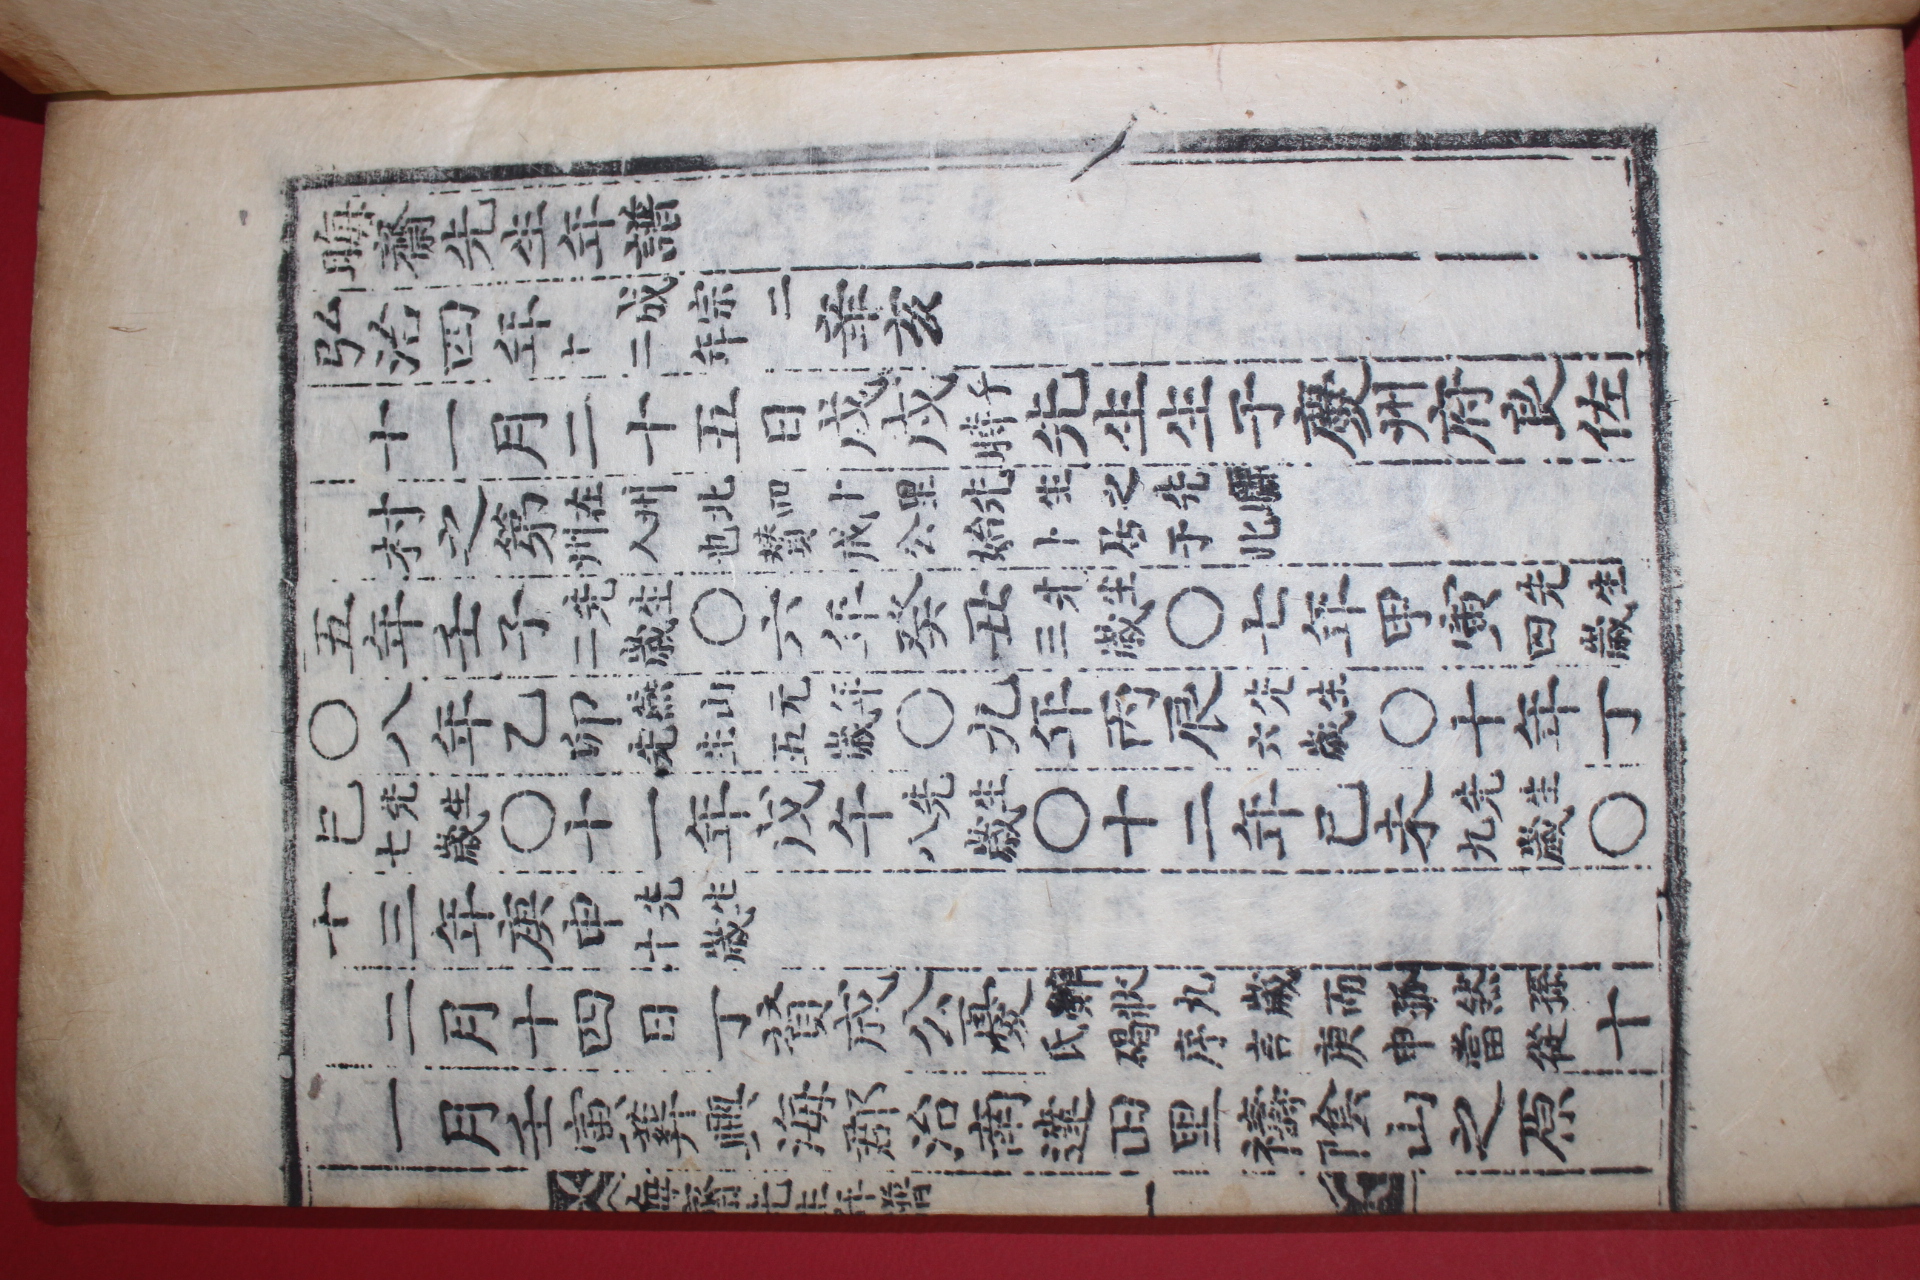 晦齋先生年譜
弘治四年成宗二十二年辛亥
十一月二十五日戊戌子時先生生于慶州府良佐
村之第在州北四十里先生之先驪州人也贊成公始卜居于此
五年壬子先生二歲〇六年癸丑先生三歲〇七年甲寅先生四歲
〇八年乙卯燕山元年先生五歲〇九年丙辰先生六歲〇十年丁
巳先生七歲〇十一年戊午先生八歲〇十二年己未先生九歲〇
十三年庚申先生十歲
二月十四日丁贊成公憂狀九歲而孤然孫氏碣序言庚申當從十
一月壬寅葬興海郡治南達田里禱陰山之原
晦齋先生年譜 一